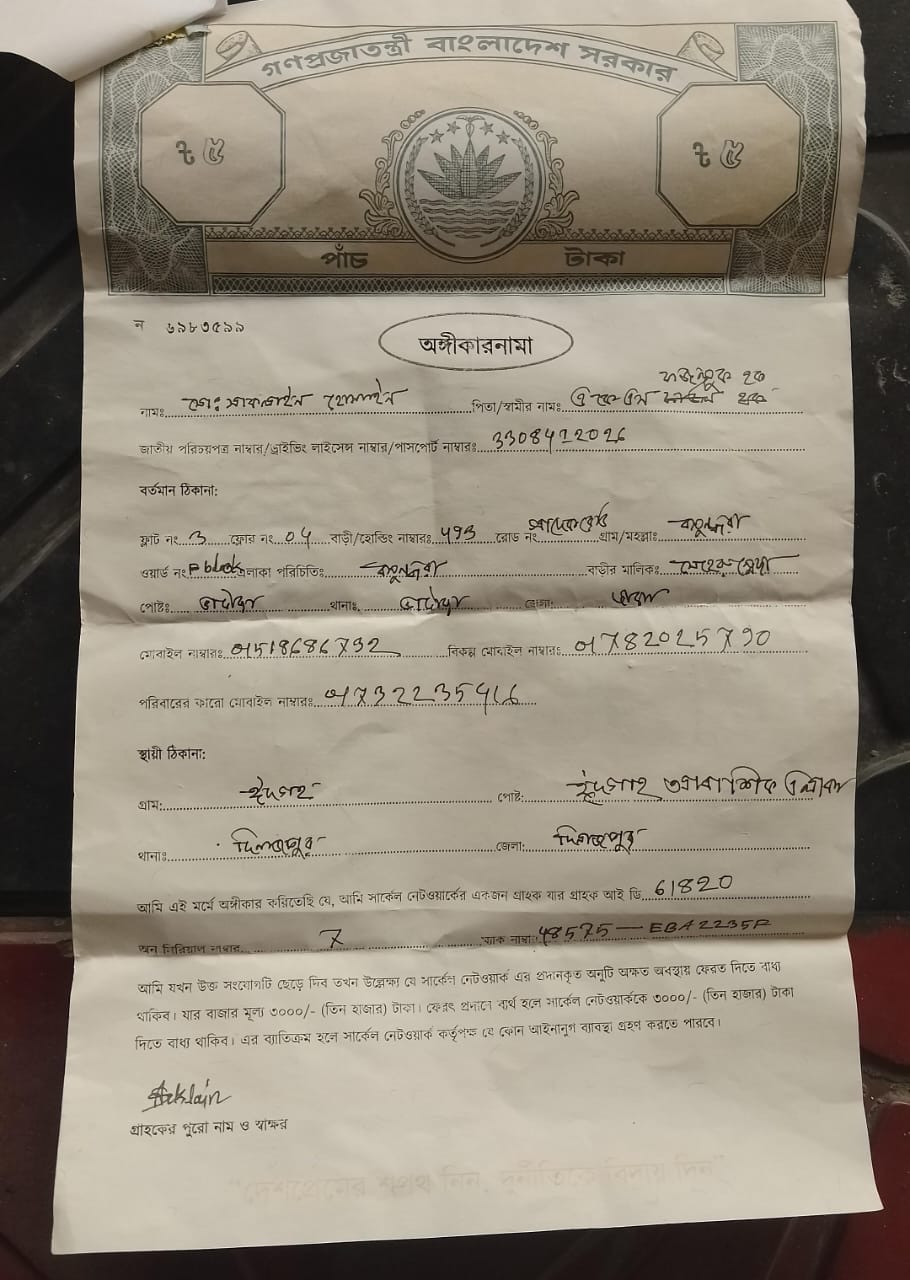 গণপ্রজাতন্ত্রী বাংলাদেশ সরকার
৳ ৫ ৳ ৫
পাঁচ টাকা
ন ৬৯৮৩৫৯৯
অঙ্গীকারনামা
নামঃ মোঃ সাকলাইন হোসাইন পিতা/স্বামীর নামঃ এ কে এম হক
জাতীয় পরিচয়পত্র নাম্বার/ড্রাইভিং লাইসেন্স নাম্বার/পাসপোর্ট নাম্বারঃ
বর্তমান ঠিকানা:
ফ্লাট নং 3 ফ্লোর নং 04 বাড়ী/হোল্ডিং নাম্বারঃ 493 রোড নং গ্রাম/মহল্লাঃ বসুন্ধরা
ওয়ার্ড নং P block এলাকা পরিচিতিঃ বসুন্ধরা বাড়ীর মালিকঃ
পোষ্টঃ ভাটারা থানাঃ ভাটারা জেলা: ঢাকা
মোবাইল নাম্বারঃ বিকল্প মোবাইল নাম্বারঃ
পরিবারের কারো মোবাইল নাম্বারঃ
স্থায়ী ঠিকানা:
গ্রাম: ঈদগাহ পোষ্ট: ঈদগাহ আবাসিক এলাকা
থানাঃ দিনাজপুর জেলা: দিনাজপুর
আমি এই মর্মে অঙ্গীকার করিতেছি যে, আমি সার্কেল নেটওয়ার্কের একজন গ্রাহক যার গ্রাহক আই ডি 61820
অনু সিরিয়াল নাম্বার 7 ম্যাক নাম্বা: 48575 — EBA2235F
আমি যখন উক্ত সংযোগটি ছেড়ে দিব তখন উল্লেক্ষ্য যে সার্কেল নেটওয়ার্ক এর প্রদানকৃত অনুটি অক্ষত অবস্থায় ফেরত দিতে বাধ্য
থাকিব। যার বাজার মূল্য ৩০০০/- (তিন হাজার) টাকা। ফেরৎ প্রদানে ব্যর্থ হলে সার্কেল নেটওয়ার্ককে ৩০০০/- (তিন হাজার) টাকা
দিতে বাধ্য থাকিব। এর ব্যাতিক্রম হলে সার্কেল নেটওয়ার্ক কর্তৃপক্ষ যে কোন আইনানুগ ব্যবস্থা গ্রহণ করতে পারবে।
Saklain
গ্রাহকের পুরো নাম ও স্বাক্ষর
"দেশপ্রেমের শপথ নিন, দুর্নীতিকে বিদায় দিন"